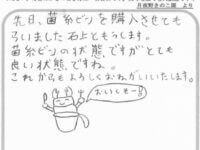 月夜野きのこ園 より
先日、菌糸ビンを購入させても
らいました石上ともうします。
菌糸ビンの状態ですがとても
良い状態ですね。
これからもよろしくおねがいいたします。
おいしそー!